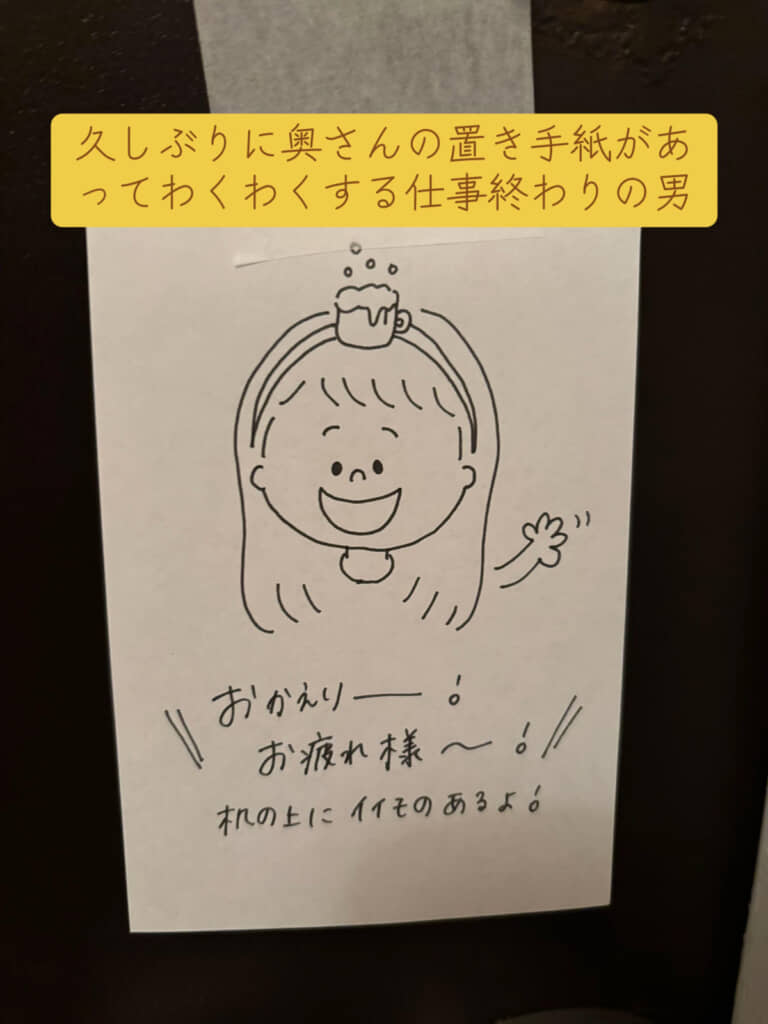 久しぶりに奥さんの置き手紙があ
ってわくわくする仕事終わりの男
おかえりー！
お疲れ様〜！
机の上にイイものあるよ！